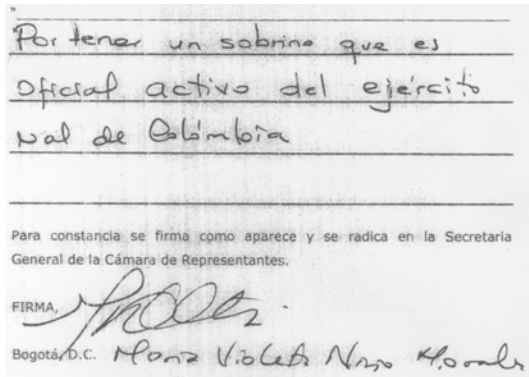 "
Por tener un sobrino que es
Oficial activo del ejército
Nal de Colómbia
Para constancia se firma como aparece y se radica en la Secretaria
General de la Cámara de Representantes.
FIRMA,
Bogotá, D.C. Maria Violeta Niño Morales